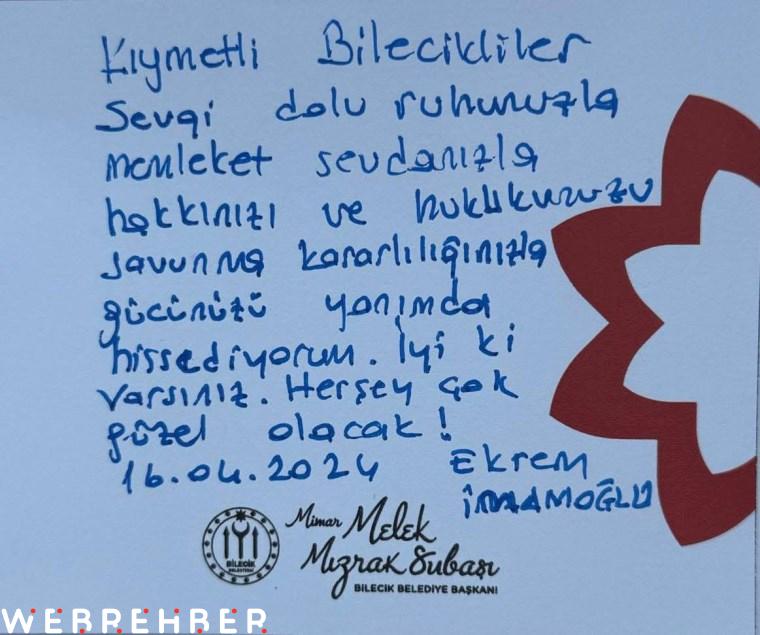 Kıymetli Bilecikliler
Sevgi dolu ruhunuzla
memleket sevdanızla
hakkınızı ve hukukunuzu
savunma kararlılığınızla
gücünüzü yanımda
hissediyorum. İyi ki
varsınız. Herşey çok
güzel olacak!
16.04.2024 Ekrem
İMAMOĞLU
BİLECİK
BELEDİYESİ
Mimar Melek
Mızrak Subaşı
BİLECİK BELEDİYE BAŞKANI
WEBREHBER